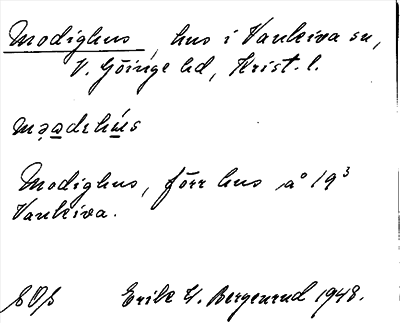 Modighus, hus i Vankiva sn,
V. Göinge hd, Krist. l.
mǝadihús
Modighus, förr hus å 19³
Vankiva.
Erik W. Bergenrud 1948.